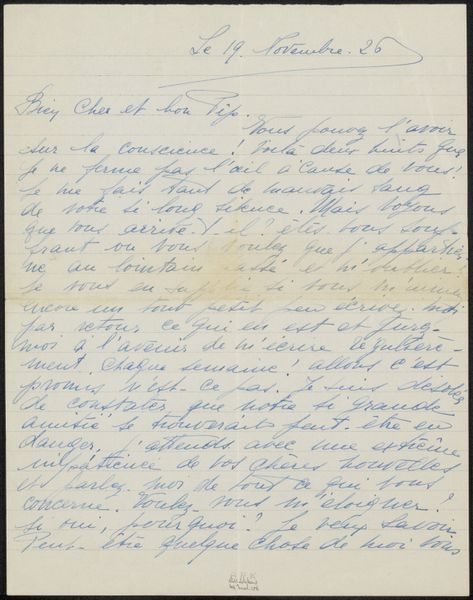 Le 19. Novembre. 26
Bien Cher et bon Pip.
Vous pouvez l'avoir
sur la conscience! Voilà deux nuits que
je ne ferme pas l'œil à cause de vous!
Je me fais tant de mauvais sang
de votre si long silence. Mais voyons
que vous arrive-t-il? êtes vous souf-
frant ou vous voulez que j'appartien-
ne au lointain passé et m'oublier?
Je vous en supplie si vous m'aimez
encore un tout petit peu écrivez-moi
par retour ce qui en est et jurez-
moi à l'avenir de m'écrire régulière-
ment, chaque semaine! allons c'est
promis n'est-ce pas. Je suis désolée
de constater que notre si grande
amitié se trouverait peut-être en
danger. J'attends avec une extrême
impatience de vos chères nouvelles
et parlez-moi de tout ce qui vous
concerne. Voulez-vous m'éloigner?
Si oui, pourquoi? Je veux savoir.
Peut-être quelque chose de moi vous